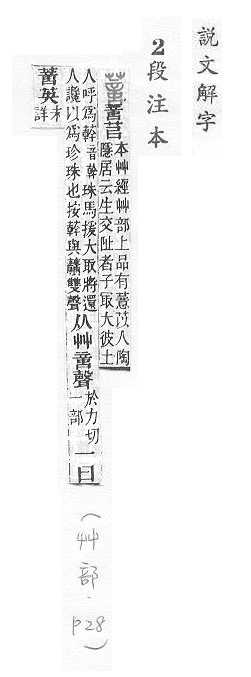 說文解字
2段注本
薏苢本艸經艸部上品有薏苡人陶
隱居云生交阯者子冣大彼土
人呼爲簳音幹珠馬援大取將還
人讒以爲珍珠也按簳與䕞雙聲从艸䔬聲於力切一部一曰
䔬英未詳
(艸部.p28)